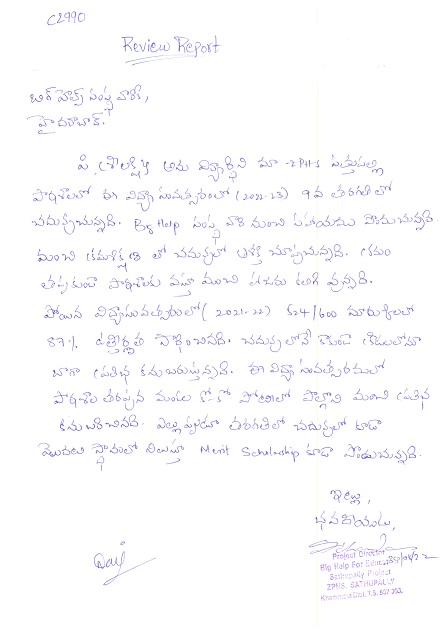 C2990
Review Report
బిగ్ హెల్ప్ సంస్థ వారికి,
హైదరాబాద్.
పి. శ్రీలక్ష్మి అను విద్యార్థిని మా ZPHS సత్తుపల్లి
పాఠశాలలో ఈ విద్యా సంవత్సరంలో (2022-23) 9వ తరగతిలో
చదువుచున్నది. Big Help సంస్థ వారి నుంచి సహాయము పొందుచున్నది.
మంచి క్రమశిక్షణ తో చదువులో ఆసక్తి చూపుచున్నది. క్రమం
తప్పకుండా పాఠశాలకు వస్తూ మంచి హాజరు కలిగి వున్నది.
పోయిన విద్యాసంవత్సరంలో (2021-22) 524/600 మార్కులతో
87% ఉత్తీర్ణత సాధించినది. చదువులోనే కాకుండా క్రీడలలోనూ
బాగా ప్రతిభ కనబరుస్తున్నది. ఈ విద్యా సంవత్సరములో
పాఠశాల తరఫున మండల ఖో-ఖో పోటీలలో పాల్గొని మంచి ప్రతిభ
కనబరిచినది. ఎల్లప్పుడూ తరగతిలో చదువులో కూడా
మొదటి స్థానంలో నిలుస్తూ Merit Scholarship కూడా పొందుచున్నది.
ఇట్లు,
భవదీయుడు,
Project Director
Big Help For Education
Sathupally Project
ZPHS, SATHUPALLY
Khammam Dist. T.S. 507 303.